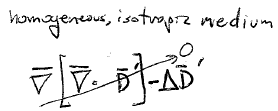 homogeneous, isotropic medium
∇̄[∇̄· D̄']-ΔD̄' 0